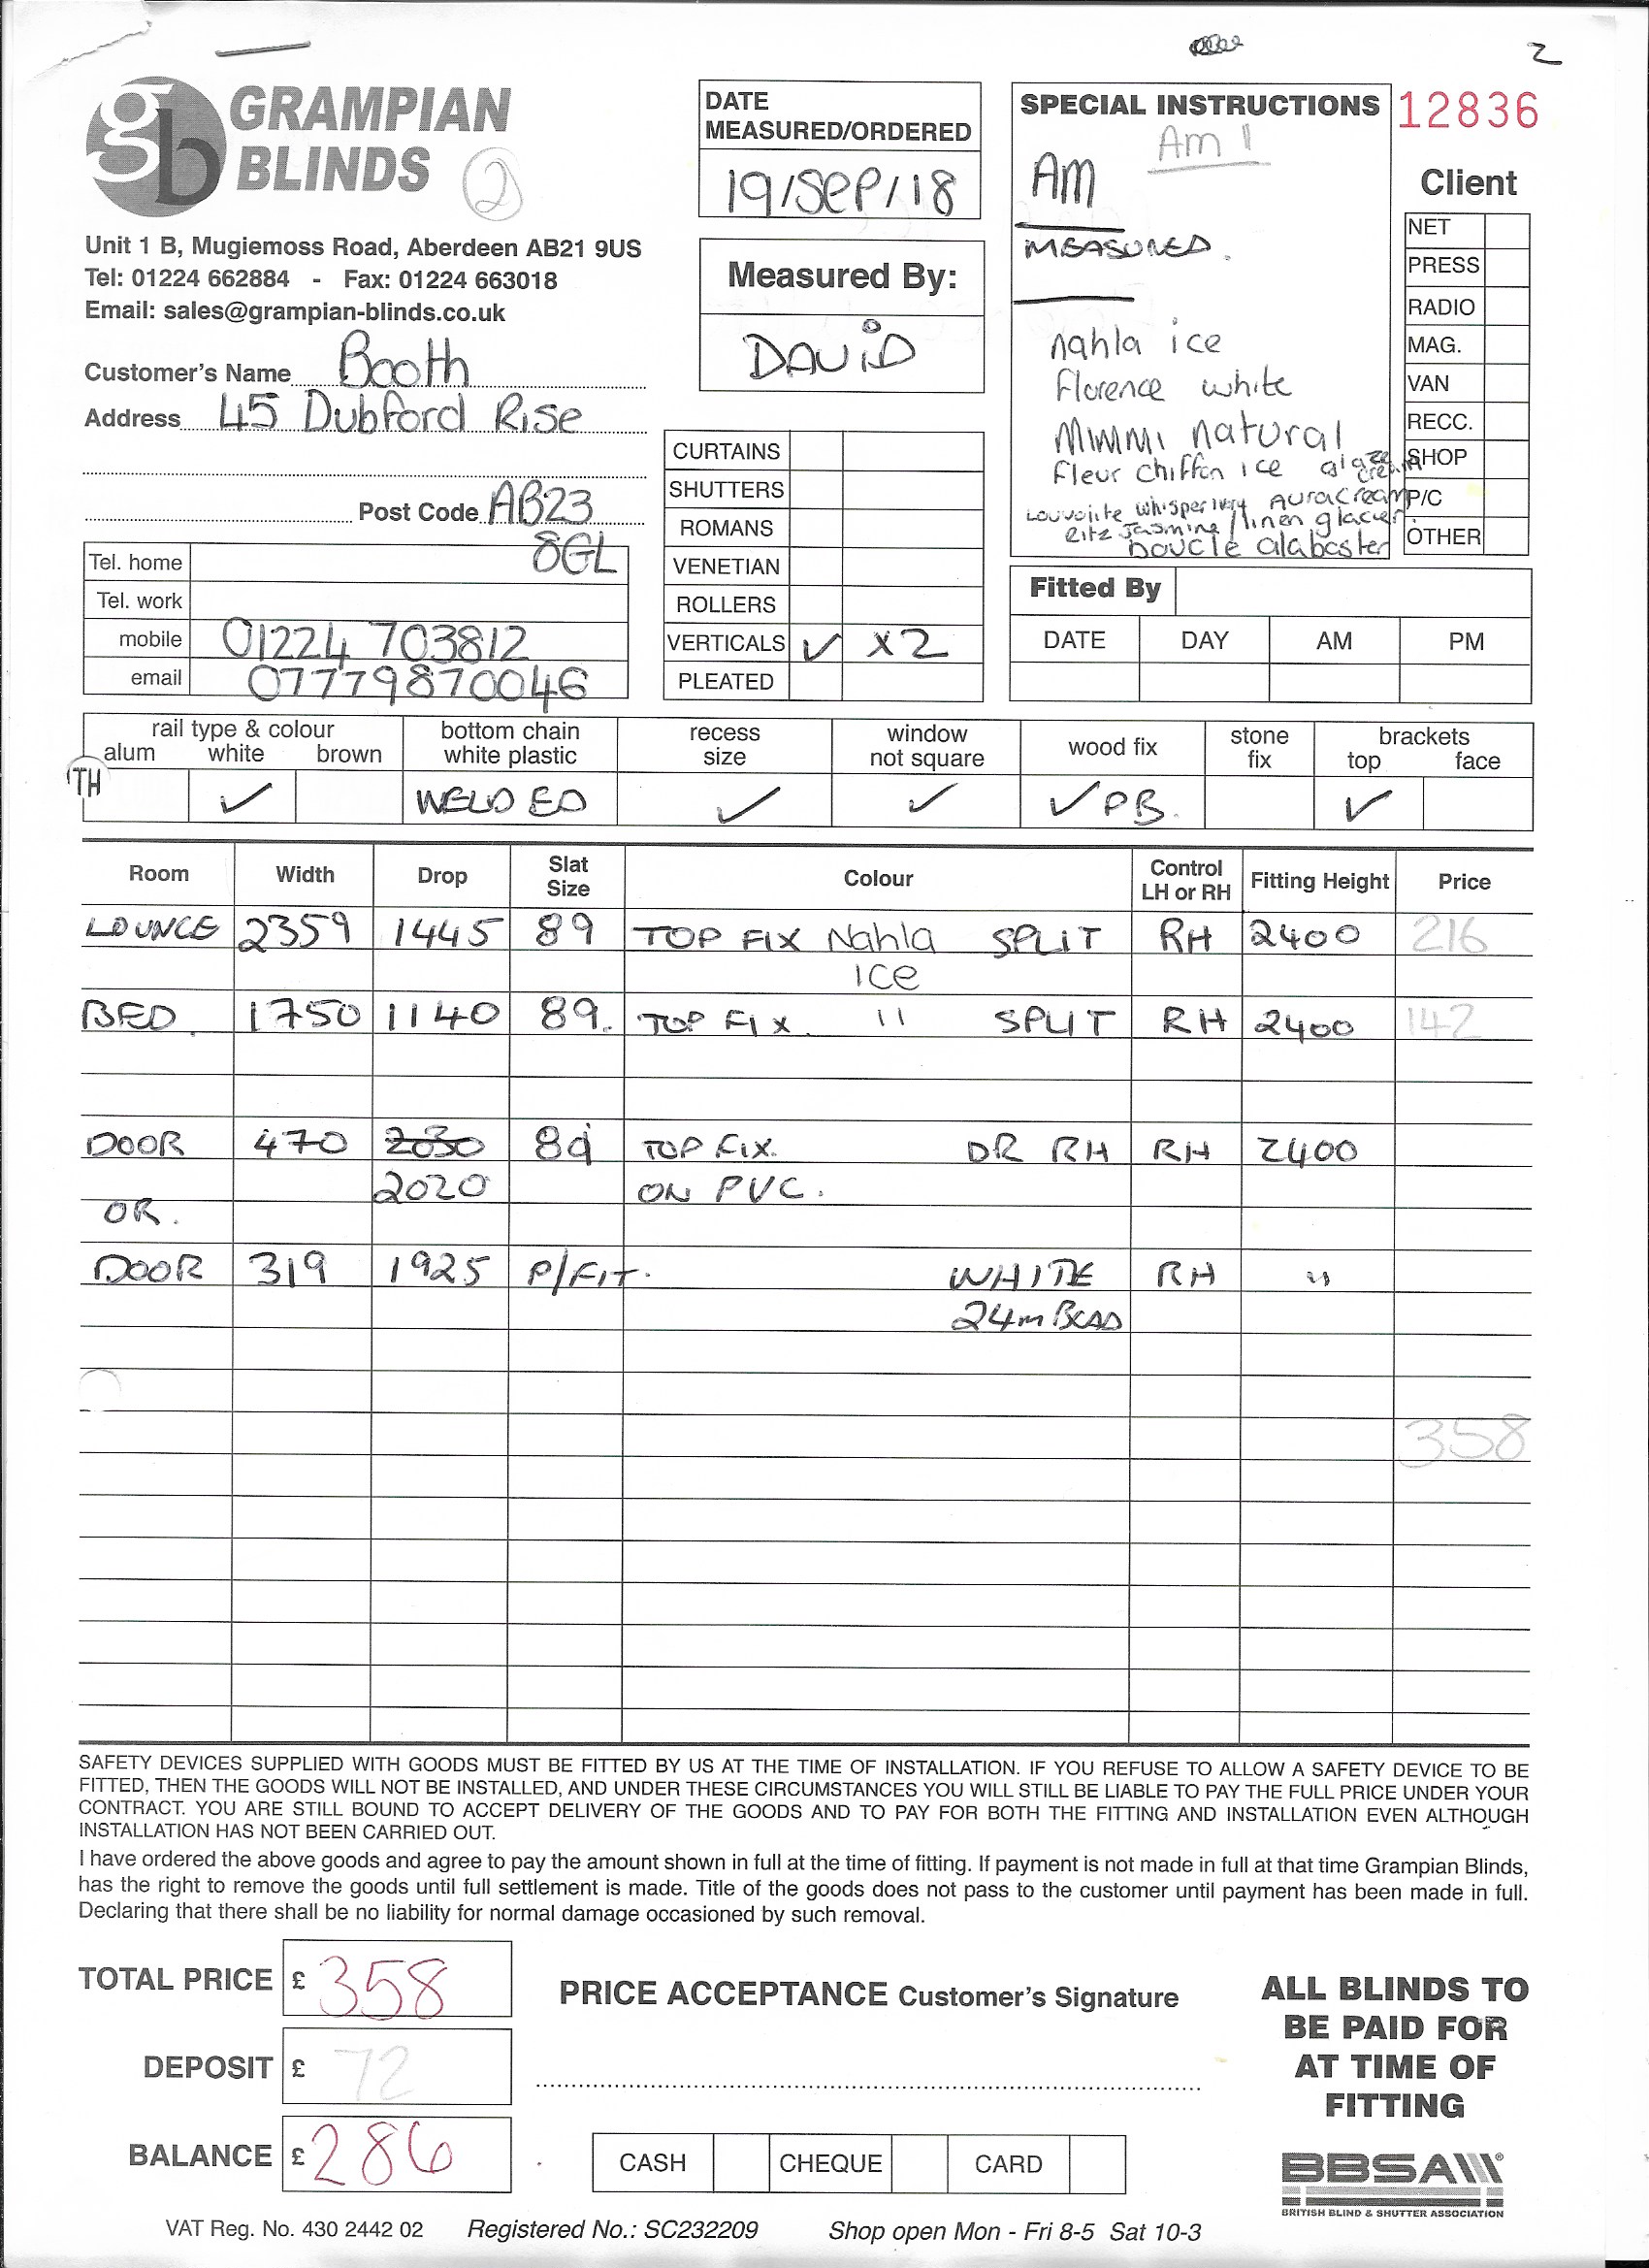 2
GRAMPIAN
BLINDS
2
Unit 1 B, Mugiemoss Road, Aberdeen AB21 9US
Tel: 01224 662884 - Fax: 01224 663018
Email: sales@grampian-blinds.co.uk
Customer's Name Booth
Address 45 Dubford Rise
Post Code AB23
8GL
Tel. home
Tel. work
mobile 01224 703812
email 07779870046
DATE
MEASURED/ORDERED
19/SEP/18
Measured By:
DAVID
CURTAINS
SHUTTERS
ROMANS
VENETIAN
ROLLERS
VERTICALS ✓ X2
PLEATED
SPECIAL INSTRUCTIONS
Am
AM
MEASURED.
Nahla ice
Florence white
Mimmi natural
Fleur chiffon ice glaze
cream
whisper ivory Aura cream
Ritz Jasmine / linen glacier
boucle alabaster
12836
Client
NET
PRESS
RADIO
MAG.
VAN
RECC.
SHOP
P/C
OTHER
Fitted By
DATE DAY AM PM
rail type & colour bottom chain recess window wood fix stone brackets
alum white brown white plastic size not square fix top face
TH ✓ WELDED ✓ ✓ ✓ PB. ✓
Room Width Drop Slat Size Colour Control LH or RH Fitting Height Price
LOUNGE 2359 1445 89 TOP FIX Nahla SPLIT RH 2400 216
ICE
BED. 1750 1140 89. TOP FIX. 11 SPLIT RH 2400 142
DOOR 470 2030 89 TOP FIX. DR RH RH 2400
2020 ON PVC.
OR.
DOOR 319 1925 P/FIT. WHITE RH "
24m BEAD
358
SAFETY DEVICES SUPPLIED WITH GOODS MUST BE FITTED BY US AT THE TIME OF INSTALLATION. IF YOU REFUSE TO ALLOW A SAFETY DEVICE TO BE
FITTED, THEN THE GOODS WILL NOT BE INSTALLED, AND UNDER THESE CIRCUMSTANCES YOU WILL STILL BE LIABLE TO PAY THE FULL PRICE UNDER YOUR
CONTRACT. YOU ARE STILL BOUND TO ACCEPT DELIVERY OF THE GOODS AND TO PAY FOR BOTH THE FITTING AND INSTALLATION EVEN ALTHOUGH
INSTALLATION HAS NOT BEEN CARRIED OUT.
I have ordered the above goods and agree to pay the amount shown in full at the time of fitting. If payment is not made in full at that time Grampian Blinds,
has the right to remove the goods until full settlement is made. Title of the goods does not pass to the customer until payment has been made in full.
Declaring that there shall be no liability for normal damage occasioned by such removal.
TOTAL PRICE £ 358
DEPOSIT £ 72
BALANCE £ 286
PRICE ACCEPTANCE Customer's Signature
CASH CHEQUE CARD
ALL BLINDS TO
BE PAID FOR
AT TIME OF
FITTING
BBSA
BRITISH BLIND & SHUTTER ASSOCIATION
VAT Reg. No. 430 2442 02 Registered No.: SC232209 Shop open Mon - Fri 8-5 Sat 10-3